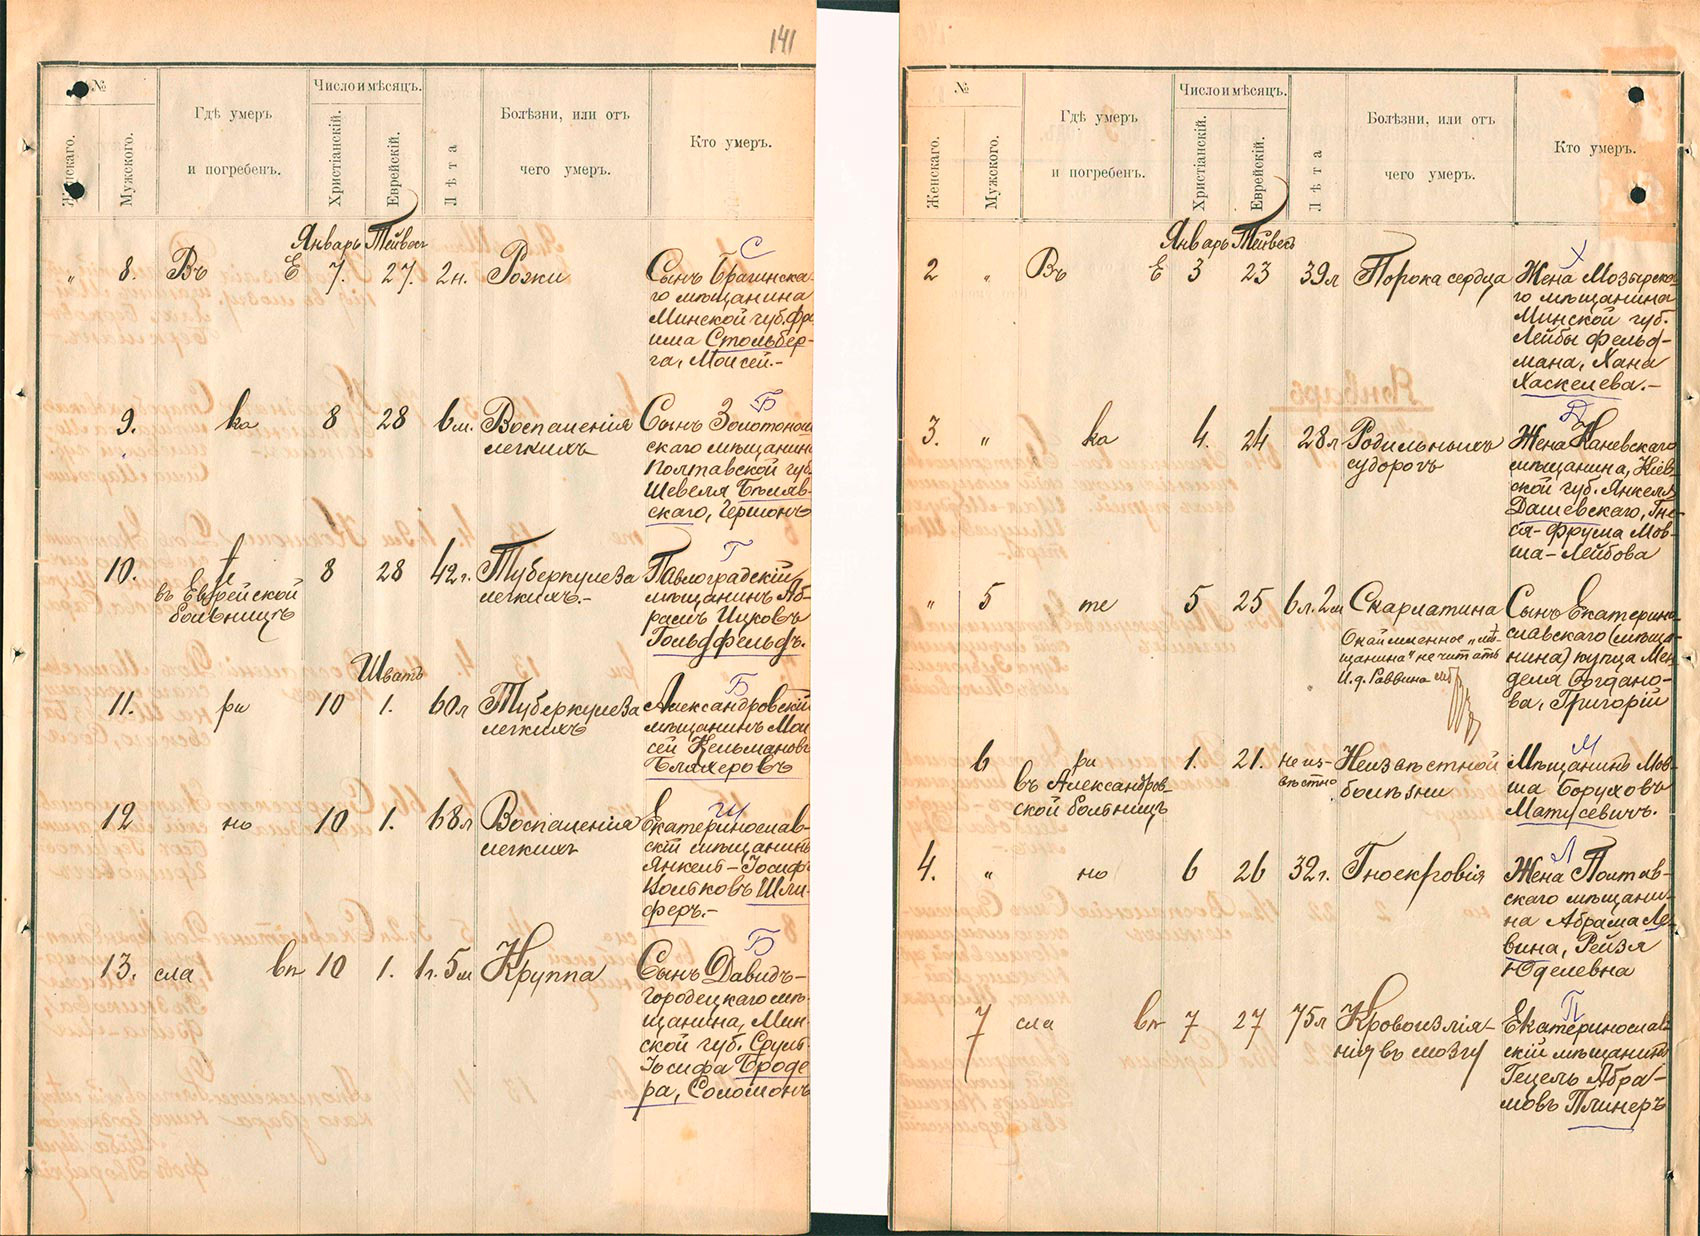 141
№
Женскаго.
Мужского.
Гдѣ умеръ
и погребенъ.
Число и мѣсяцъ.
Христіанскій.
Еврейскій.
Лѣта
Болѣзни, или отъ
чего умеръ.
Кто умеръ.
Январь Тейвесъ
С
„ 8. Въ Е 7. 27. 2н. Рожи
Сынъ Брагинска-
го мѣщанина
Минской губ. Фро
има Стольбер-
га, Моисей.-
Б
9. ка 8 28 6м. Воспаленія
легкихъ
Сынъ Золотонош
скаго мѣщанина
Полтавской губ.
Шевеля Бѣляв-
скаго, Гершонъ
Г
10. те 8 28 42г. Туберкулеза
легкихъ.-
въ Еврейской
больницѣ
Павлоградскій
мѣщанинъ Аб-
рамъ Ицковъ
Гольдфельдъ.
Шватъ
Б
11. ри 10 1. 60л Туберкулеза
легкихъ
Александровскій
мѣщанинъ Мои
сей Кельмановъ
Бляхеровъ
Ш
12 но 10 1. 68л Воспаленія
легкихъ
Екатеринослав-
скій мѣщанинъ
Янкель-Іосифъ
Вольковъ Шли-
феръ.-
Б
13. сла вп 10 1. 1г. 5м Круппа
Сынъ Давидъ-
городецкаго мѣ-
щанина, Мин-
ской губ. Сруль-
Іосифа Броде-
ра, Соломонъ
№
Женскаго.
Мужского.
Гдѣ умеръ
и погребенъ.
Число и мѣсяцъ.
Христіанскій.
Еврейскій.
Лѣта
Болѣзни, или отъ
чего умеръ.
Кто умеръ.
Январь Тейвесъ
Х
2 „ Въ Е 3 23 39л Порока сердца
Жена Мозырска-
го мѣщанина
Минской губ.
Лейбы Фельд-
мана, Хана
Хаскелева.-
Д
3. „ ка 4. 24 28л Родильныхъ
судорогъ
Жена Каневскаго
мѣщанина, Кіев-
ской губ. Янкеля
Дашевскаго, Гне-
ся-Фрума Мов-
ша-Лейбова
„ 5 те 5 25 6л. 2м Скарлатина
Окаймленное „мѣ-
щанина" не читать
И.д. Раввина
Сынъ Екатерино-
славскаго (мѣща-
нина) купца Мен
деля Богдано-
ва, Григорій
М
6 ри 1. 21. неиз-
вѣстно
Неизвѣстной
болѣзни
въ Александров-
ской больницѣ
Мѣщанинъ Мов-
ша Боруховъ
Матусевичъ.
Л
4. „ но 6 26 32г. Гноекровія
Жена Полтав-
скаго мѣщани-
на Абрама Ле-
вина, Рейзя
Юделевна
П
7 сла вп 7 27 75л Кровоизлія-
нія въ мозгу
Екатеринослав-
скій мѣщанинъ
Гецель Абра-
мовъ Плинеръ